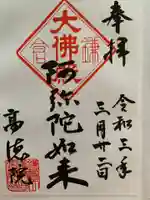 奉拝
令和三年
三月廿二日
大佛殿
鎌倉
阿弥陀如来
高德院